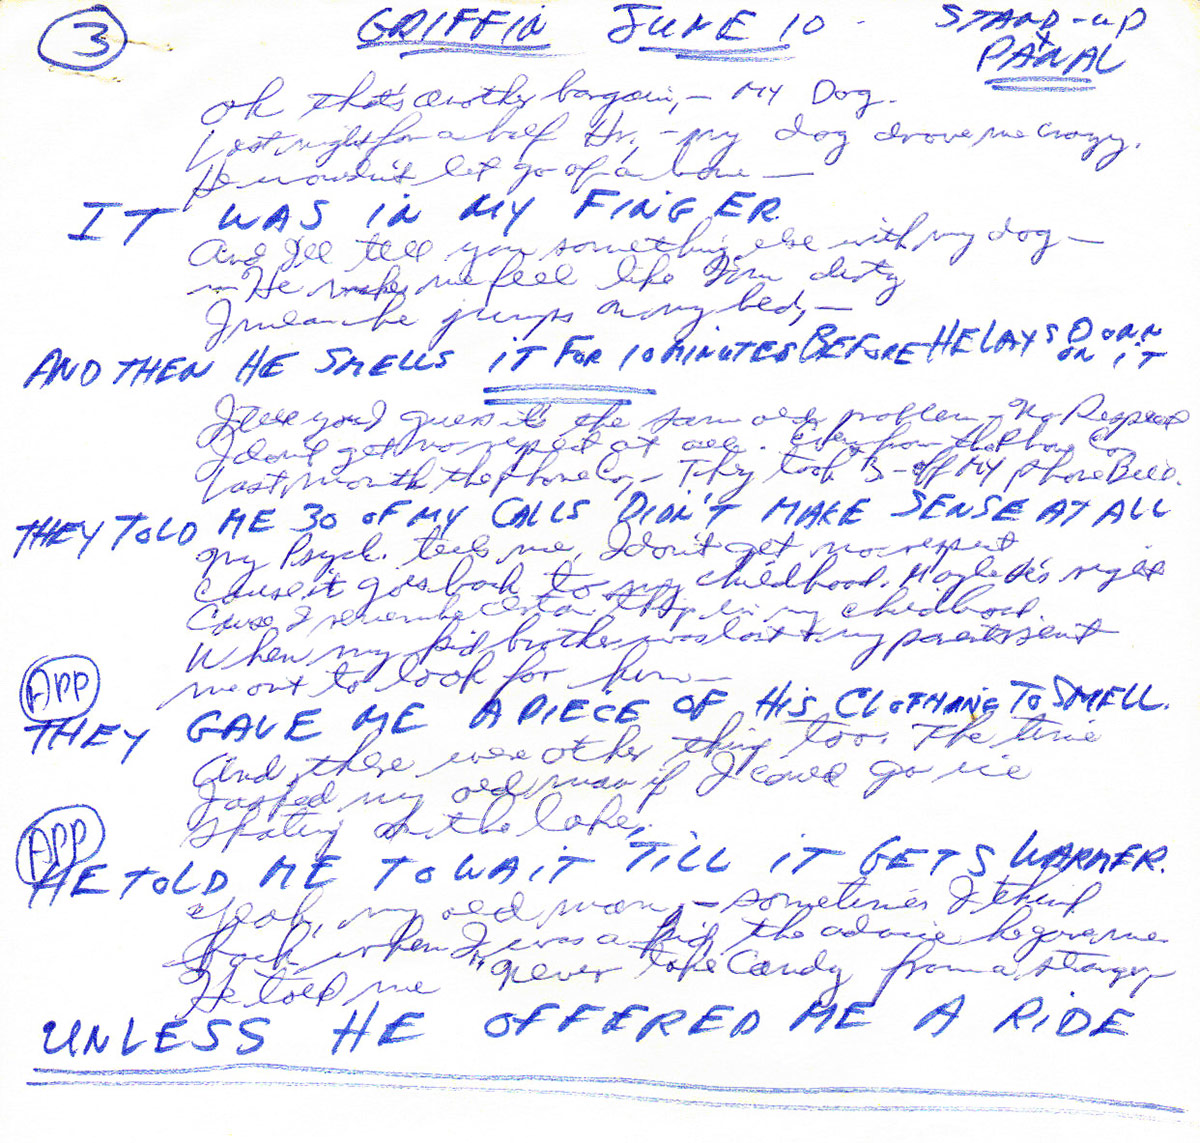 3
GRIFFIN JUNE 10 - STAND-UP
+
PANAL
oh that's another bargain, — MY Dog.
Last night for a half Hr, — my dog drove me crazy.
He wouldn't let go of a bone —
IT WAS IN MY FINGER.
And I'll tell you something else with my dog —
— He makes me feel like I'm dirty
I mean he jumps on my bed, —
AND THEN HE SMELLS IT FOR 10 MINUTES BEFORE HE LAYS DOWN
ON IT
I tell you I guess it's the same old problem - No Respect
I don't get no respect at all. Even from the Phone Co,
Last month the phone Co, — They took 3 - off MY phone Bill.
THEY TOLD ME 30 OF MY CALLS DIDN'T MAKE SENSE AT ALL
My Psych. tells me, I don't get no respect
cause it goes back to my childhood. Maybe he's right
Cause I remember certain things in my childhood.
When my kid brother was lost & my parents sent
me out to look for him —
APP
THEY GAVE ME A PIECE OF HIS CLOTHING TO SMELL.
And there were other things too. The time
I asked my old man if I could go ice
skating on the lake,
APP
HE TOLD ME TO WAIT TILL IT GETS WARMER.
Yeah, my old man, — sometimes I think
back when I was a kid, the advice he gave me
He told me "never take candy from a stranger,
UNLESS HE OFFERED ME A RIDE